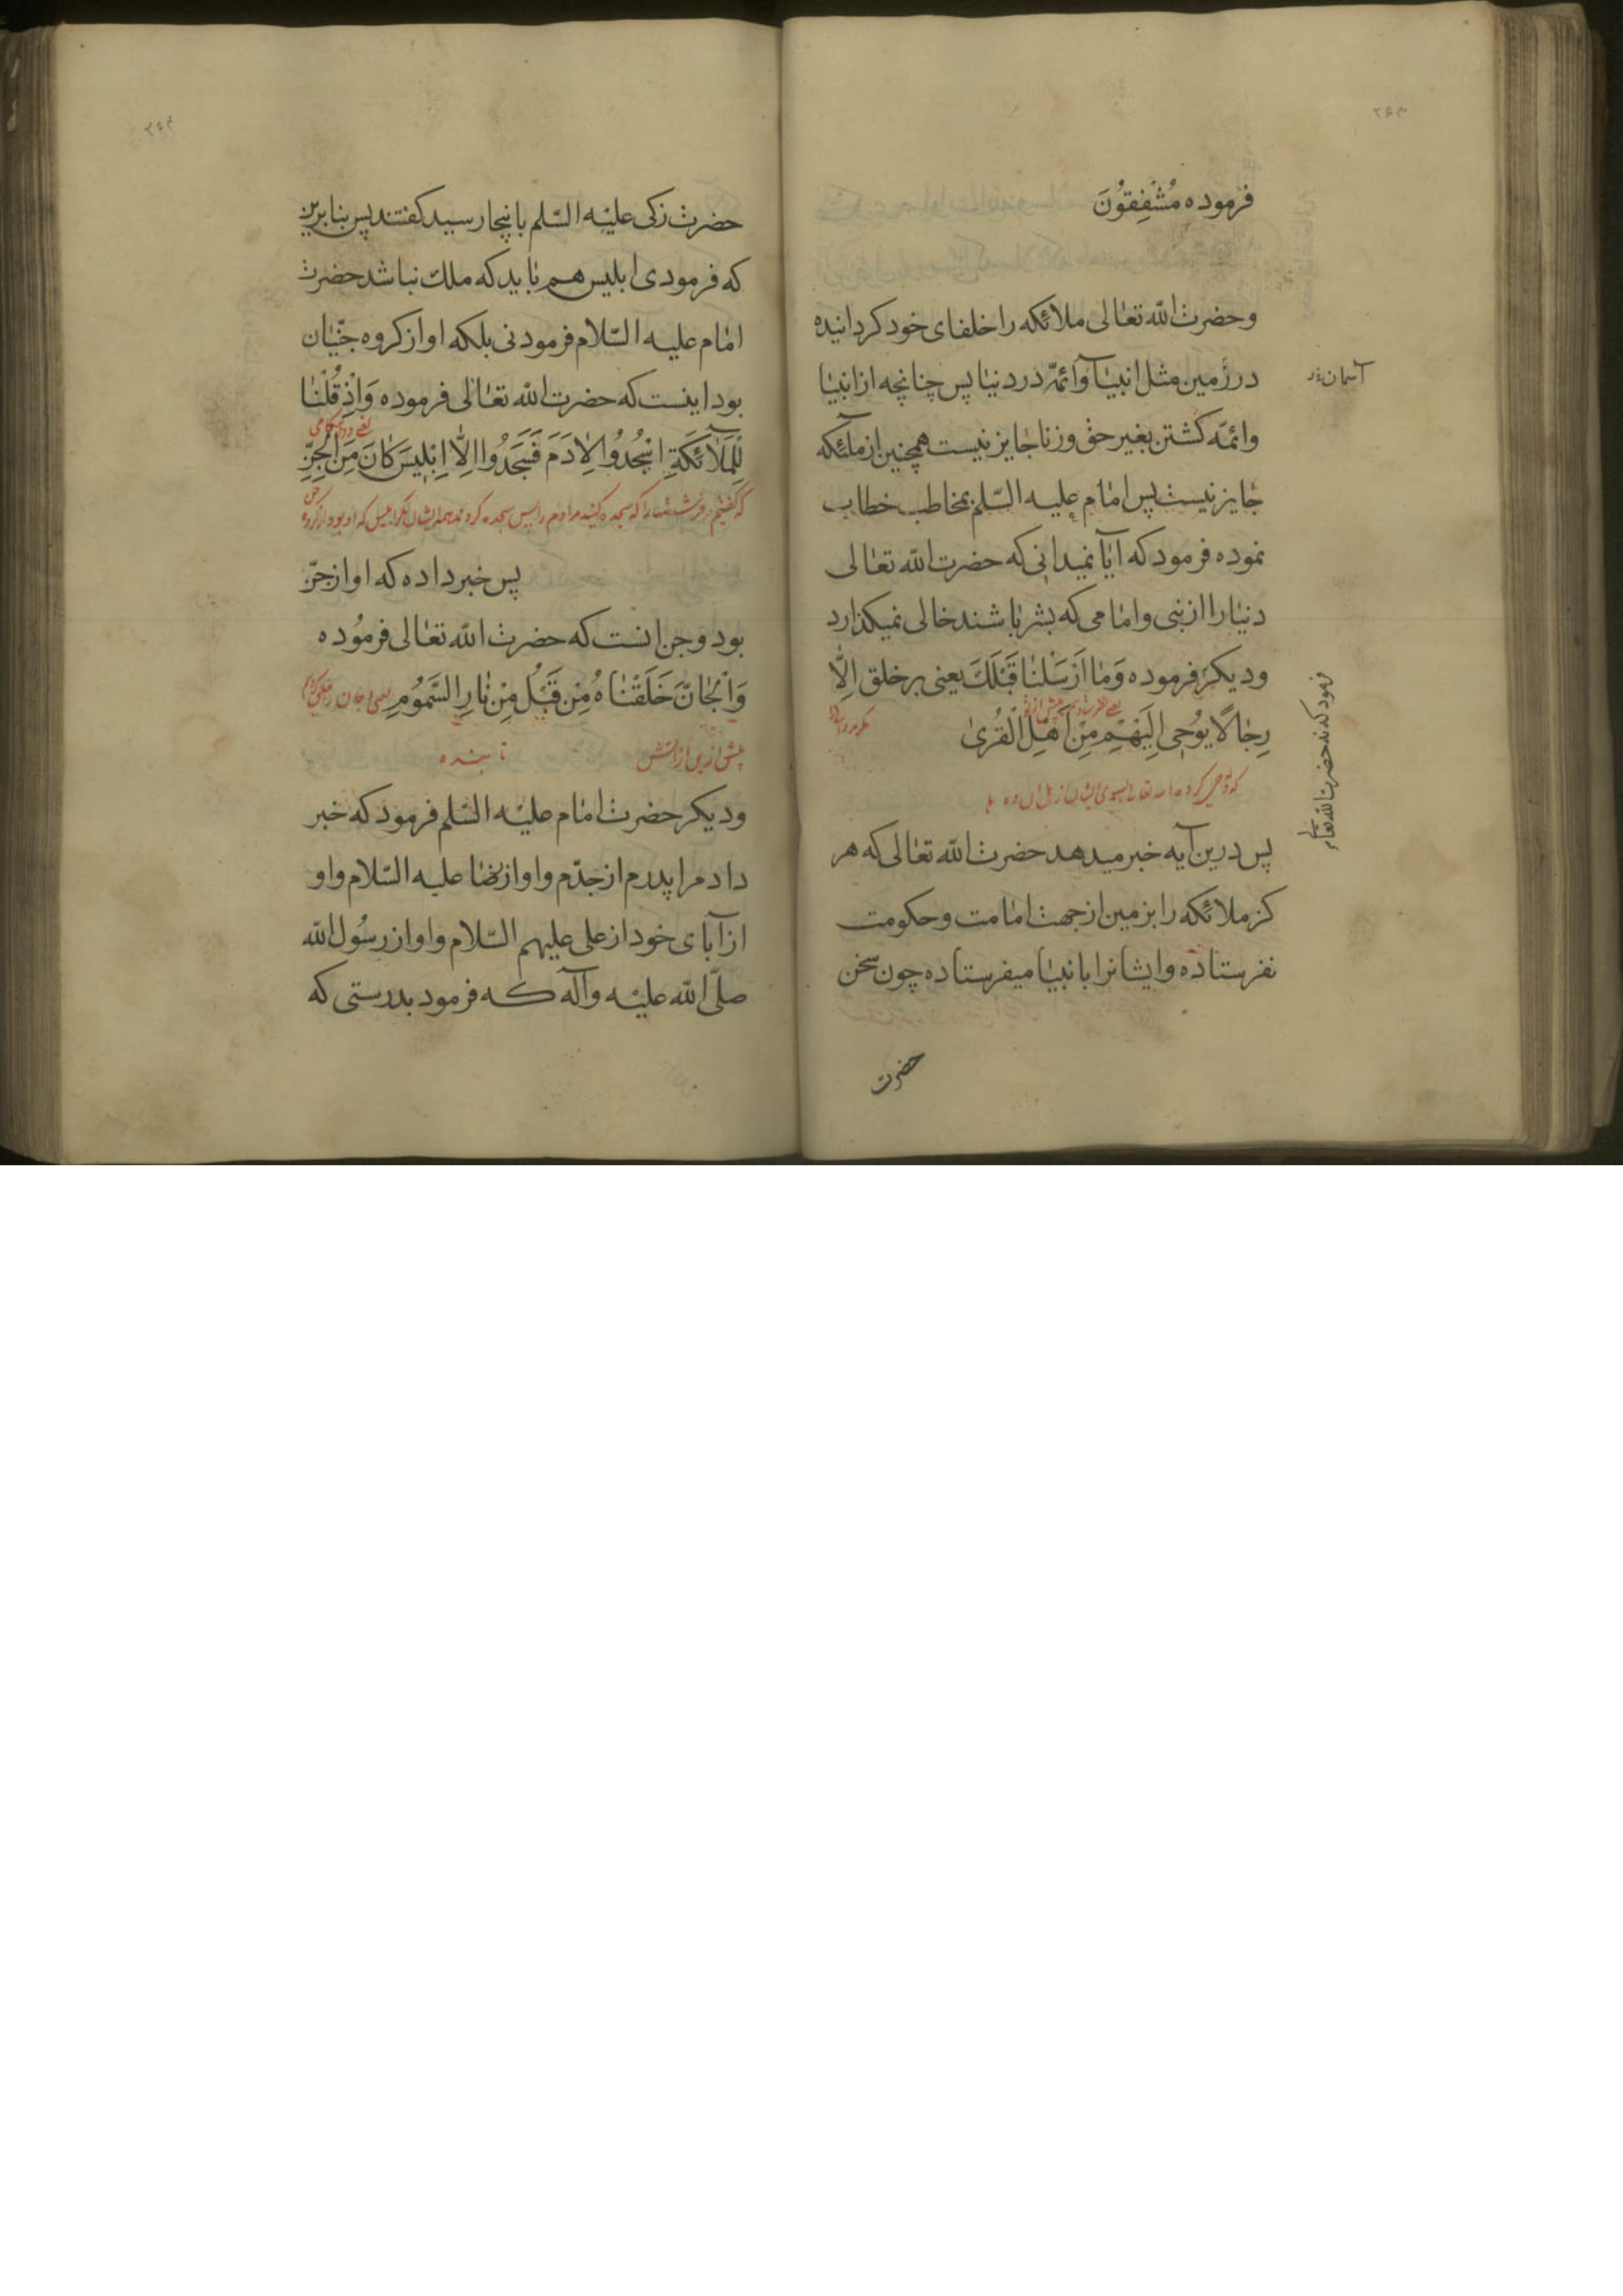 فرموده مُشْفِقُونَ
وحضرت الله تعالی ملائکه را خلفای خود کردانیده
در زمین مثل انبیآ وائمّه در دنیا پس چنانچه از انبیا
آسمان
وائمّه کشتن بغیر حق وزنا جایز نیست همچنین از ملئکه
جایز نیست پس امام علیه السّلم بمخاطب خطاب
نموده فرمود که آیا نمیدانی که حضرت الله تعالی
دنیا را از نبی وامامی که بشر باشند خالی نمیکذارد
ودیکر فرموده وَمَا اَرْسَلْنَا قَبْلَكَ یعنی بر خلق اِلَّا
رِجَالًا یُوحٰی اِلَیْهِمْ مِنْ اَهْلِ الْقُرٰی
پس درین آیه خبر میدهد حضرت الله تعالی که هر
کز ملائکه را بزمین از جهت امامت وحکومت
نفرستاده وایشانرا بانبیا میفرستاده چون سخن
حضرت
حضرت زکی علیْه السّلم بانیجا رسید کفتند پس بنابرین
که فرمودی ابلیس هم باید که ملك نباشد حضرت
امام علیه السّلام فرمود نی بلکه او از کروه جنّیان
بود اینست که حضرت الله تعالی فرموده وَاِذْ قُلْنَا
لِلْمَلَآئِکَةِ اسْجُدُوا لِاٰدَمَ فَسَجَدُوا اِلَّا اِبْلِیسَ کَانَ مِنَ الْجِنِّ
که کفتیم فرشتها را که سجده کنید مر ادم را پس سجده کردند همه ایشان مکر ابلیس که او بود از کروه جن
پس خبر داده که او از جنّ
بود وجن انست که حضرت الله تعالی فرمُوده
وَالْجَانَّ خَلَقْنَاهُ مِنْ قَبْلُ مِنْ نَارِ السَّمُومِ یعنی وجان را خلق کردیم
پیش ازین از اتش تابنده
ودیکر حضرت امام علیْه السّلم فرمود که خبر
داد مرا پدرم از جدّم واو از رضا علیه السّلام واو
از آبای خود از علی علیهم السّلام واو از رسُول الله
صلّی الله علیْه وآله که فرمود بدرستی که